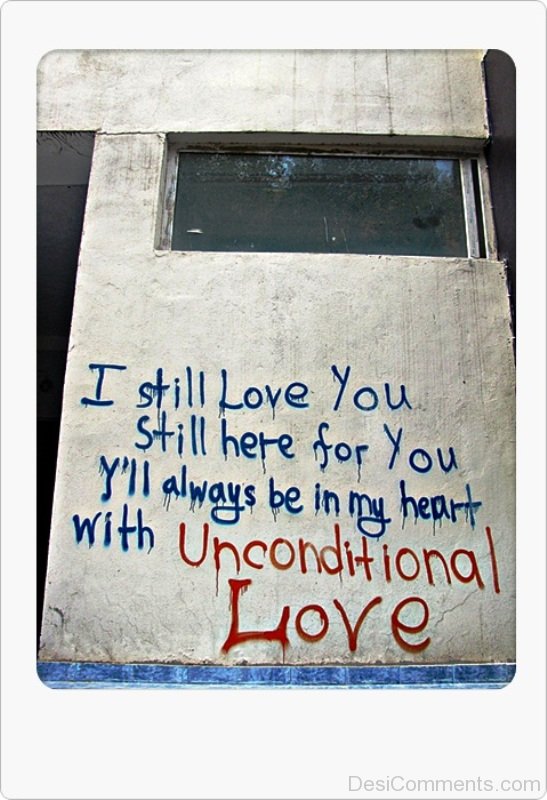 I still Love You
Still here for You
Y'll always be in my heart
with Unconditional
Love
DesiComments.com